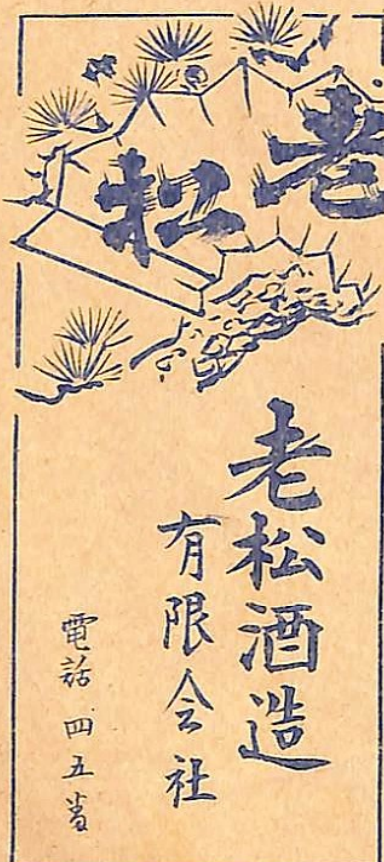 老松
老松酒造
有限会社
電話 四五番